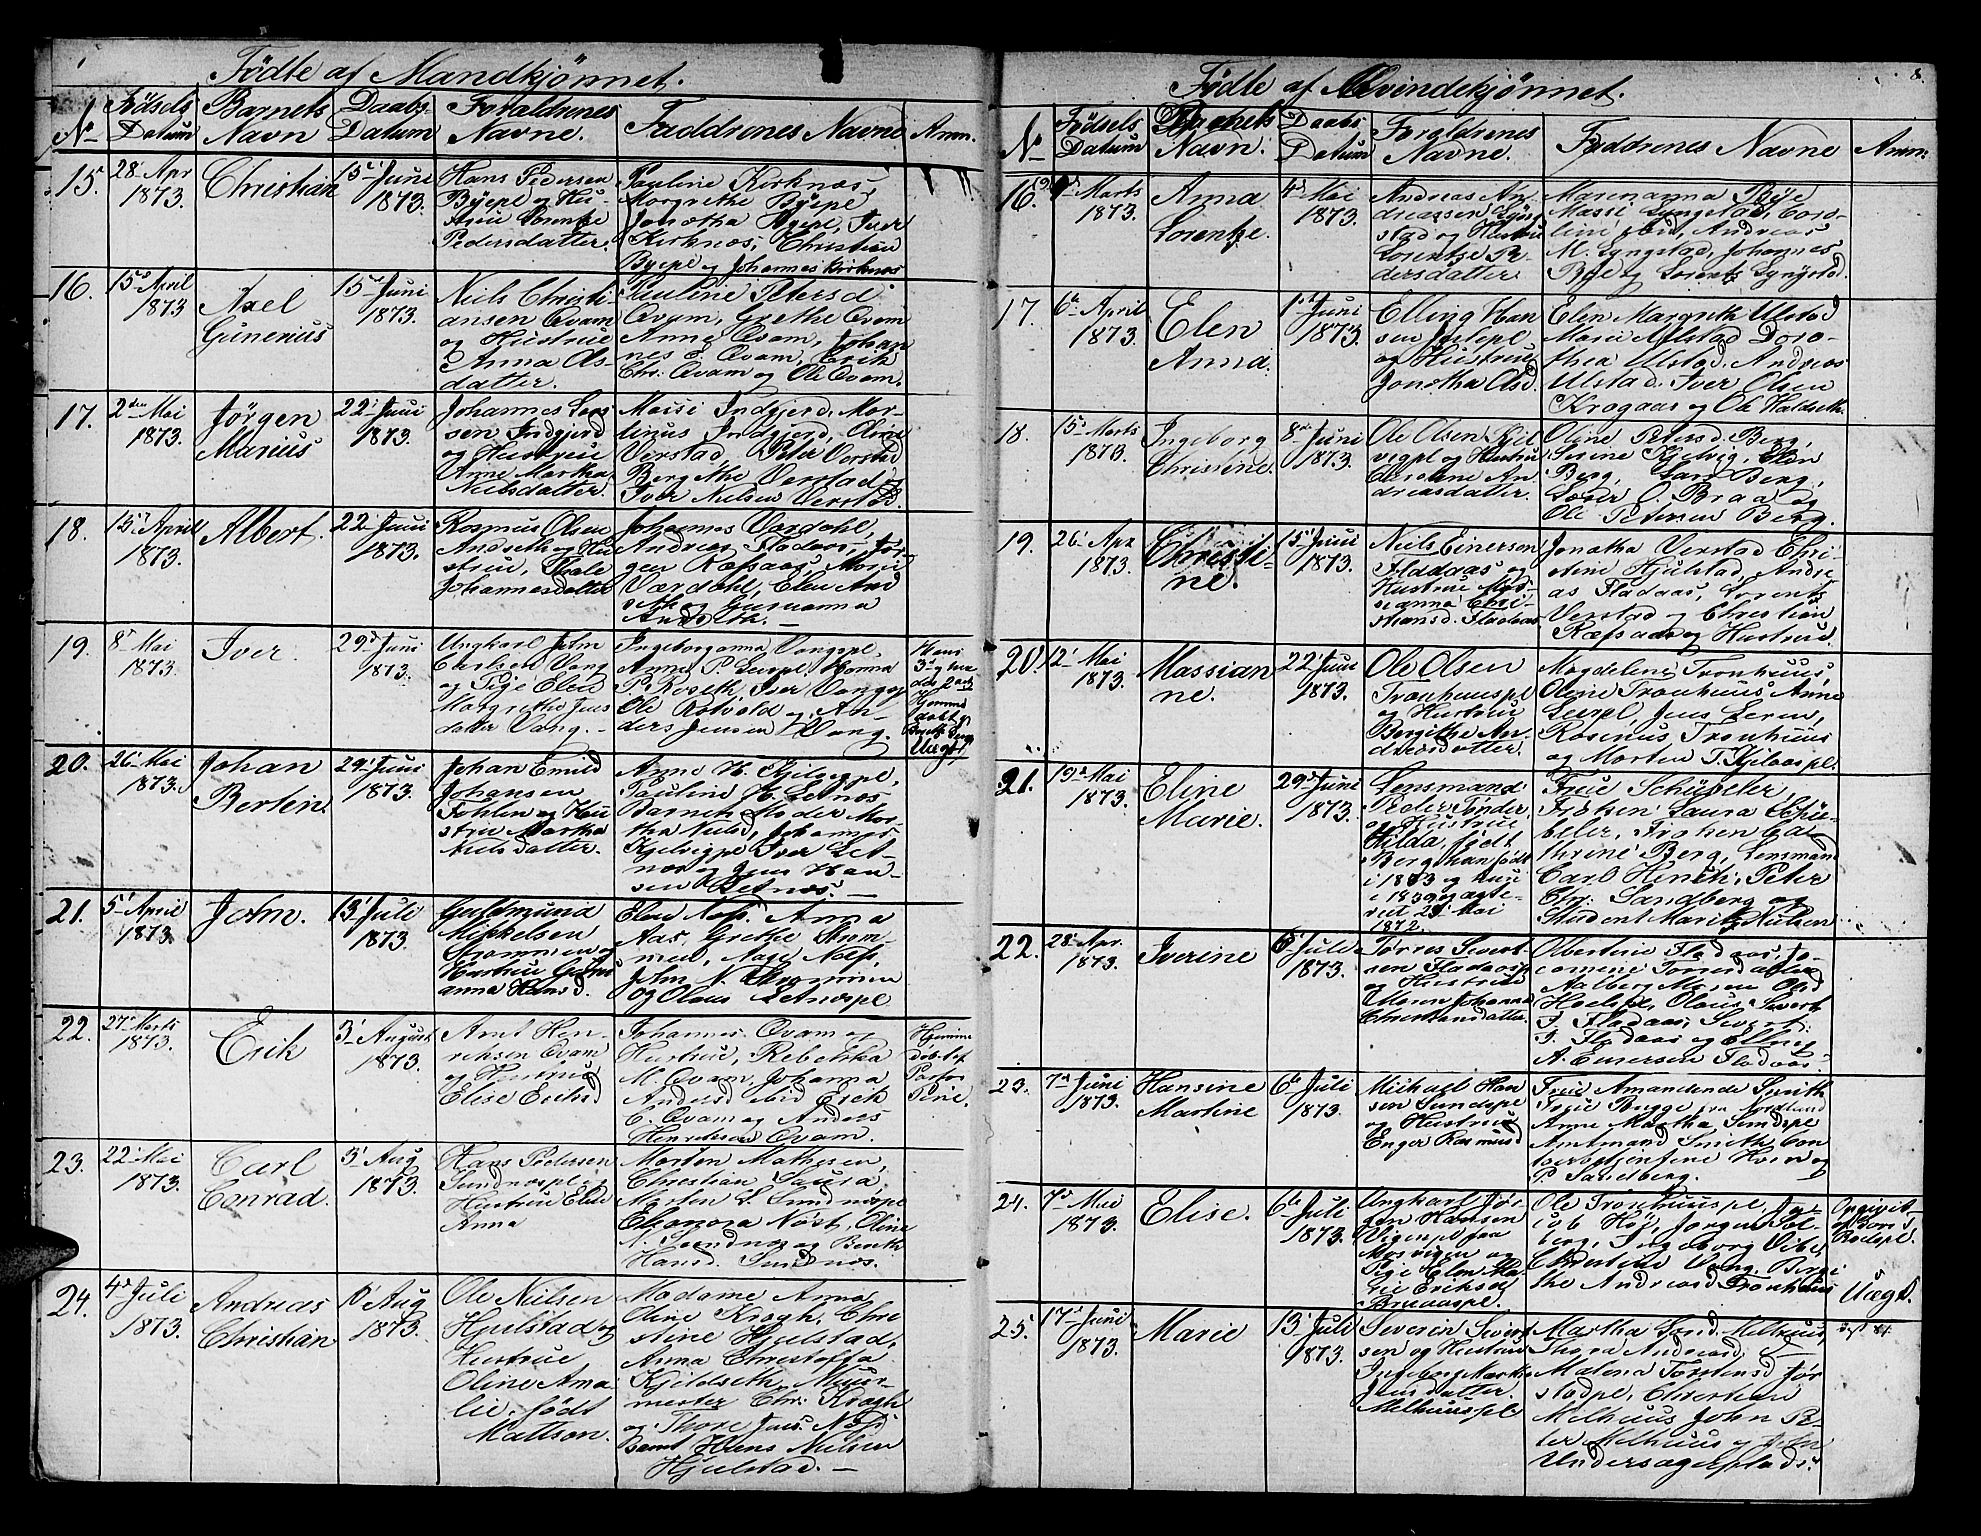 Födte af Mandkjönnet.
No Födsels Datum Barnets Navn Daabs Datum Forældrenes Navne. Faddrenes Navne Anm.
15. 28 Apr 1873. Christian 15 Juni 1873.
Hans Pedersen
Byepl og Hu-
strue Lorentze
Pedersdatter.
Pauline Kirknæs,
Margrethe Byepl
Jonetha Byepl, Iver
Kirknæs, Christian
Byepl og Johannes Kirknæs
16. 15 April 1873 Axel Gunerius 15 Juni 1873.
Niels Christi-
ansen Qvam
og Hustrue
Anna Ols-
datter.
Pauline Petersd
Qvam, Grethe Qvam
Anne Qvam, Johan
nes Qvam, Erik
Chr. Qvam og Ole Qvam.
17. 2den Mai 1873. Jörgen Marius 22 Juni 1873.
Johannes Lars
sen Indgjerd
og Hustrue
Anne Martha
Nielsdatter.
Massi Indgjerd, Mar-
tinus Indgjerd, Oline
Verstad, Peter Verstad
Bergithe Verstad og
Iver Nielsen Verstad.
18. 15 April 1873. Albert. 22 Juni 1873.
Rasmus Olsen
Andseth og Hu
strue,
Johannesdatter
Johannes Værdahl,
Andreas Fladaas, Jör
gen Ræfsaas, Marie
Værdahl, Elen And
seth og Gurianna
Andseth. —
19. 8 Mai 1873. Iver. 29 Juni 1873.
Ungkarl John
Vang
og Pige Elen
Margrethe Jens
datter Vang. —
Ingeborganna Vangspl
Anne P. Leerpl,
P. Roseth, Iver Vangspl
Ole Rotvold og An-
ders Jensen Vang.
Uægte
20. 26 Mai 1873. Johan Bertin. 29 Juni 1873.
Johan Emild
Johansen
Fohlen og Hu
strue Martha
Nielsdatter.
Anne H. Kjelvigpl,
Pauline H. Letnæs
Barnets Moder Mar-
tha Nielsd, Johannes
Kjelvigpl Iver Let-
næs og Jens Han-
sen Letnæs. —
21. 5 April 1873 John. 13 Juli 1873.
Guldmund
Mikkelsen
Strømmen og
Hustrue
anna Hansd.
Elen Næss, Anna
Aas, Grethe Ström
men, Aage Næss,
John N. Strømmen
og Olaus Letnæspl
22. 27 Marts 1873. Erik 3 August 1873.
Arnt Hen-
riksen Qvam
og Hustrue
Elise Eriksd
Johannes Qvam og
Hustrue, Rebekka
M. Qvam, Johanna
Andersd ibid Erik
C. Qvam og Anders
Henriksen Qvam.
Hjemme
døbt af
23. 22 Mai 1873. Carl Conrad. 3 Aug 1873.
Hans Pedersen
Sundnæspl og
Hustrue Elen
Anna
Morten Mathisen,
Christian Saura
Morten L. Sundnæspl
Eleonora Næst, Oline
N. Sundnæs og Bereth
Hansd. Sundnæs.
24. 4 Juli 1873. Andreas Christian 10 Aug 1873.
Ole Nielsen
Hjelstad og
Hustrue,
Oline Ama
lie, født
Mattson.
Madame Anna
Oline Krogh, Chri
stine Hjelstad,
Anna Christoffa
Kjeldseth, Muur-
mester Chr. Krogh
og Thore Jens. Næss
samt Hans Nielsen
Hjelstad. —
8.
Födte af Qvindekjønnet.
No Födsels Datum Barnets Navn. Daabs Datum Forældrenes Navne. Faddrenes Navne Anm:
16. 9 Marts 1873. Anna Lorentze. 4 Mai 1873.
Andreas An
dreassen Lyng
stad og Hustrue
Lorentse Pe
dersdatter.
Marenanna Bye
Massi Lyngstad, Caro
line ibid, Andreas
M. Lyngstad, Johannes
Bye og Lorents Lyngstad.
17. 6 April 1873. Elen Anna. 1 Juni 1873.
Elling Han
sen
og Hustrue
Jonetha Olsd.
Elen Margreth Ulstad
Marie Ulstad Doro-
thea Ulstad, Andreas
Ulstad, Iver Olsen
Kragaas og Ole Haldseth.
18. 15 Marts 1873. Ingeborg Christine. 8 Juni 1873.
Ole Olsen Kjel
vigpl og Hustrue
An
dreasdatter.
Oline Petersd. Berg,
Serine Kjelvig, Elen
Berg, Lars Berg,
O. Braa og
Ole Petersen Berg.
19. 26 Apr 1873. Christi-ne. 15 Juni 1873.
Niels Einersen
Fladaas og
Hustrue Mas-
sianna Chri-
stiansd. Fladaas
Jonetha Verstad Chri-
stine Hjulstad, Andre
as Fladaas, Lorents
Verstad og Christian
Ræfsaas og Hustrue.
20. 12 Mai 1873. Massian ne. 22 Juni 1873.
Ole Olsen
Tronhuuspl
og Hustrue
Bergithe An-
dreasdatter.
Magdeline Tronhuus,
Olene Tronhuus Anne
Leerpl, Jens Leren,
Rasmus Tronhuus
og Morten T. Kjelaaspl.
21. 19 Mai 1873. Eline Marie. 29 Juni 1873.
Lensmand
Peder Tønder
og Hustrue
Hilda, født
Berg han født
i 1843 og hun
i 1839 og ægte-
viet 29 Mai
1872.
Frue Schübeler,
Frøken Laura Schü-
beler, Frøken Ca
thrine Berg, Lensmand
Carl Hensch, Peter
Chr. Sandberg og
Student Maritz Nielsen
22. 28 Apr. 1873. Iverine 6 Juli 1873.
Torres Sivert
sen Fladaaspl
og Hustrue
Maren Johanna
Christiansdatter.
Olbertine Fladaas, Ja-
comine Torresdatter
Aalberg Maren Olsd
Haelspl, Olaus Sivert
J. Fladaas, Sivert
J. Fladaas og Elling
A. Einersen Fladaas.
23. 7 Juni 1873. Hansine Martine 6 Juli 1873.
Michael Han
sen Sundspl
og Hustrue
Enger Rasmusd
Frue Amandende Smith
Frue Bugge fra Jordland
Anne Martha Sundspl
Amtmand Smith Con
torbetjent Horn og
P. Sandberg.
24. 7 Mai 1873. Elise. 6te Juli 1873.
Ungkarl Jör-
gen Hansen
Vigenpl fra
Mosvigen og
Pige Elen Ma
rie Eriksd
Bruaaspl.
Ole Tronhuuspl, Ja-
cob Höj, Jørgen Sol-
berg, Ingeborg Vibe,
Christine Vang. Bergi-
the Andreasd Tronhuus
Opgivet
Uægte.
25. 17 Juni 1873. Marie 13 Juli 1873.
Severin Sivert
sen og Hustrue
Ingeborg Martha
Jensdatter
Melhuuspl.
Martha Melhuus,
Thora Andreasd.
Malena Torstensd Jør
stadpl, Christian
Melhuus John Pe-
ter Melhuus og John
Undersagerplads.